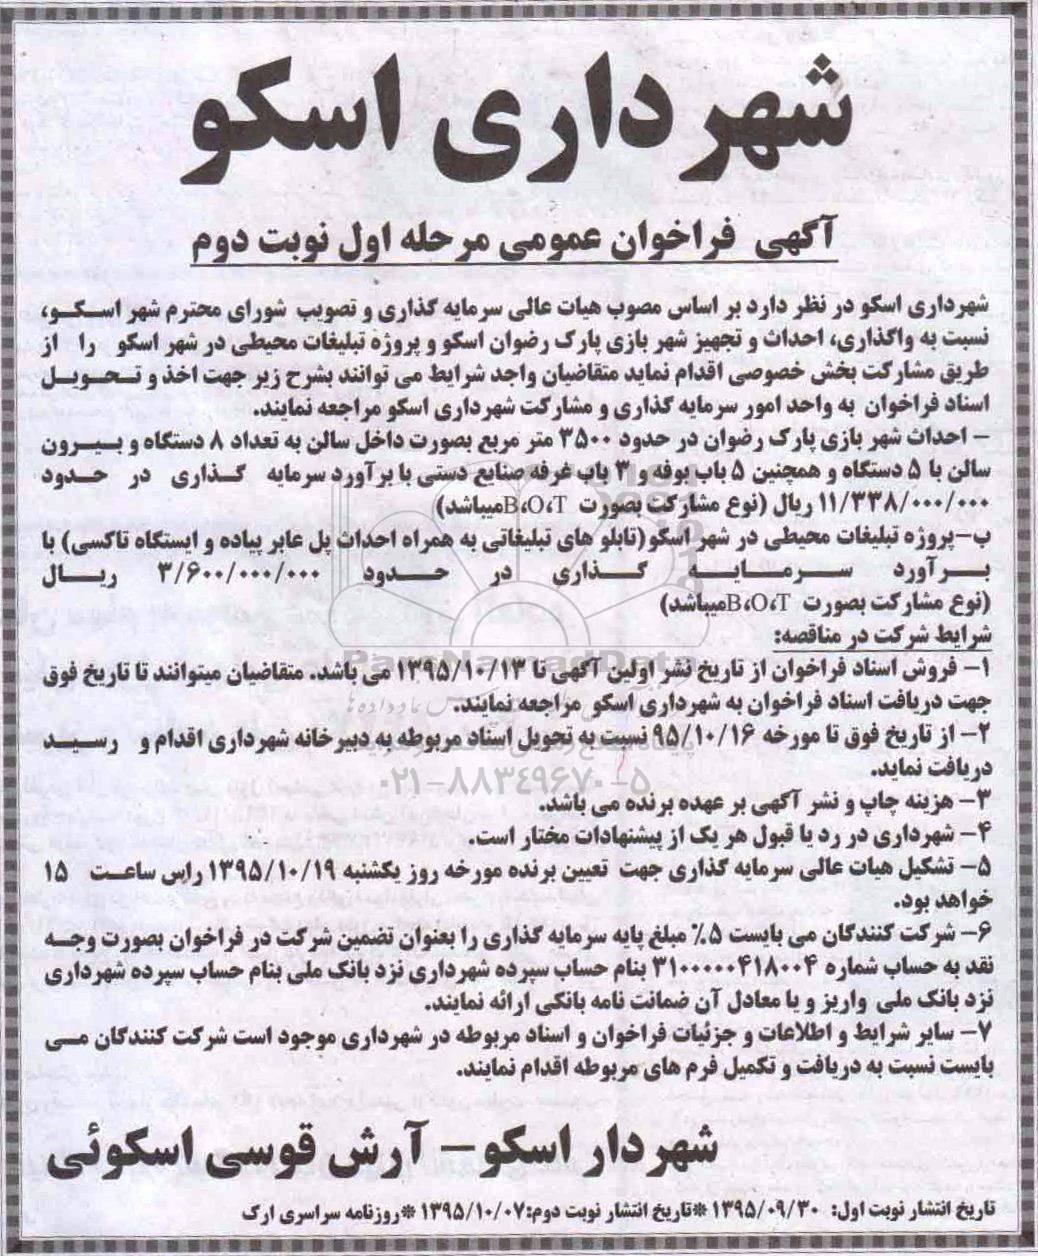 شهرداری اسکو
آگهی فراخوان عمومی مرحله اول نوبت دوم
شهرداری اسکو در نظر دارد بر اساس مصوب هیات عالی سرمایه گذاری و تصویب شورای محترم شهر اسکو،
نسبت به واگذاری، احداث و تجهیز شهر بازی پارک رضوان اسکو و پروژه تبلیغات محیطی در شهر اسکو را از
طریق مشارکت بخش خصوصی اقدام نماید متقاضیان واجد شرایط می توانند بشرح زیر جهت اخذ و تحویل
اسناد فراخوان به واحد امور سرمایه گذاری و مشارکت شهرداری اسکو مراجعه نمایند.
- احداث شهر بازی پارک رضوان در حدود ۳۵۰۰ متر مربع بصورت داخل سالن به تعداد ۸ دستگاه و بیرون
سالن با ۵ دستگاه و همچنین ۵ باب بوفه و ۳ باب غرفه صنایع دستی با برآورد سرمایه گذاری در حدود
۱۱/۳۳۸/۰۰۰/۰۰۰ ریال (نوع مشارکت بصورت B،O،T میباشد)
ب-پروژه تبلیغات محیطی در شهر اسکو(تابلو های تبلیغاتی به همراه احداث پل عابر پیاده و ایستگاه تاکسی) با
برآورد سرمایه گذاری در حدود ۳/۶۰۰/۰۰۰/۰۰۰ ریال
(نوع مشارکت بصورت B،O،T میباشد)
شرایط شرکت در مناقصه:
۱- فروش اسناد فراخوان از تاریخ نشر اولین آگهی تا ۱۳۹۵/۱۰/۱۳ می باشد. متقاضیان میتوانند تا تاریخ فوق
جهت دریافت اسناد فراخوان به شهرداری اسکو مراجعه نمایند.
۲- از تاریخ فوق تا مورخه ۹۵/۱۰/۱۶ نسبت به تحویل اسناد مربوطه به دبیرخانه شهرداری اقدام و رسید
دریافت نماید.
۳- هزینه چاپ و نشر آگهی بر عهده برنده می باشد.
۴- شهرداری در رد یا قبول هر یک از پیشنهادات مختار است.
۵- تشکیل هیات عالی سرمایه گذاری جهت تعیین برنده مورخه روز یکشنبه ۱۳۹۵/۱۰/۱۹ راس ساعت ۱۵
خواهد بود.
۶- شرکت کنندگان می بایست ۵٪ مبلغ پایه سرمایه گذاری را بعنوان تضمین شرکت در فراخوان بصورت وجه
نقد به حساب شماره ۳۱۰۰۰۰۰۴۱۸۰۰۴ بنام حساب سپرده شهرداری نزد بانک ملی بنام حساب سپرده شهرداری
نزد بانک ملی واریز و یا معادل آن ضمانت نامه بانکی ارائه نمایند.
۷- سایر شرایط و اطلاعات و جزئیات فراخوان و اسناد مربوطه در شهرداری موجود است شرکت کنندگان می
بایست نسبت به دریافت و تکمیل فرم های مربوطه اقدام نمایند.
شهردار اسکو- آرش قوسی اسکوئی
تاریخ انتشار نوبت اول: ۱۳۹۵/۰۹/۳۰ *تاریخ انتشار نوبت دوم:۱۳۹۵/۱۰/۰۷ *روزنامه سراسری ارک
ParsNamadData
۰۲۱-۸۸۳۴۹۶۷۰-۵